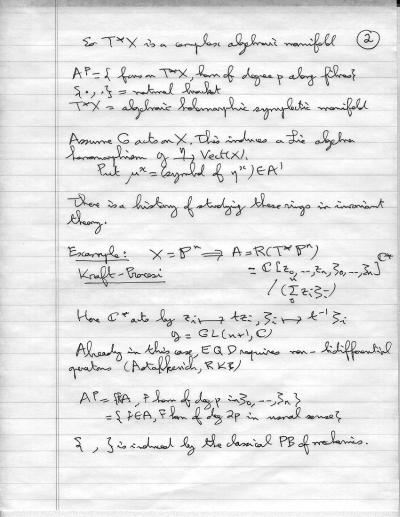 So T*X is a complex algebraic manifold ②
A^p = { fcns on T*X, hom of degree p along fibres }
{·,·} = natural bracket
T*X = algebraic holomorphic symplectic manifold
Assume G acts on X. This induces a Lie algebra
homomorphism g →^η Vect(X).
Put μ^x = (symbol of η^x) ∈ A^1
There is a history of studying these rings in invariant
theory.
Example: X = P^n ⟹ A = R(T*P^n)
Kraft-Procesi = C[z_0, --, z_n, ζ_0, --, ζ_n]^{C*}
/ (Σ_0 z_i ζ_i)
Here C* acts by z_i ↦ t z_i, ζ_i ↦ t^{-1} ζ_i
g = GL(n+1, C)
Already in this case, EQD requires non-bidifferential
operators (Astashkevich, RKB)
A^p = {F∈A, F hom of deg p in ζ_0, --, ζ_n}
= {F∈A, F hom of deg 2p in usual sense}
{ , } is induced by the classical PB of mechanics.